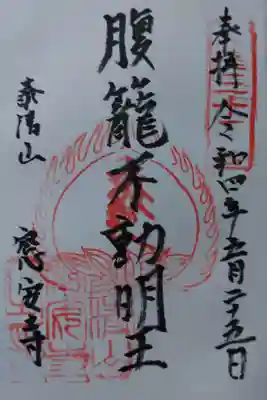 奉拝 令和四年五月二十五日
腹籠不動明王
泰陽山
窓安寺